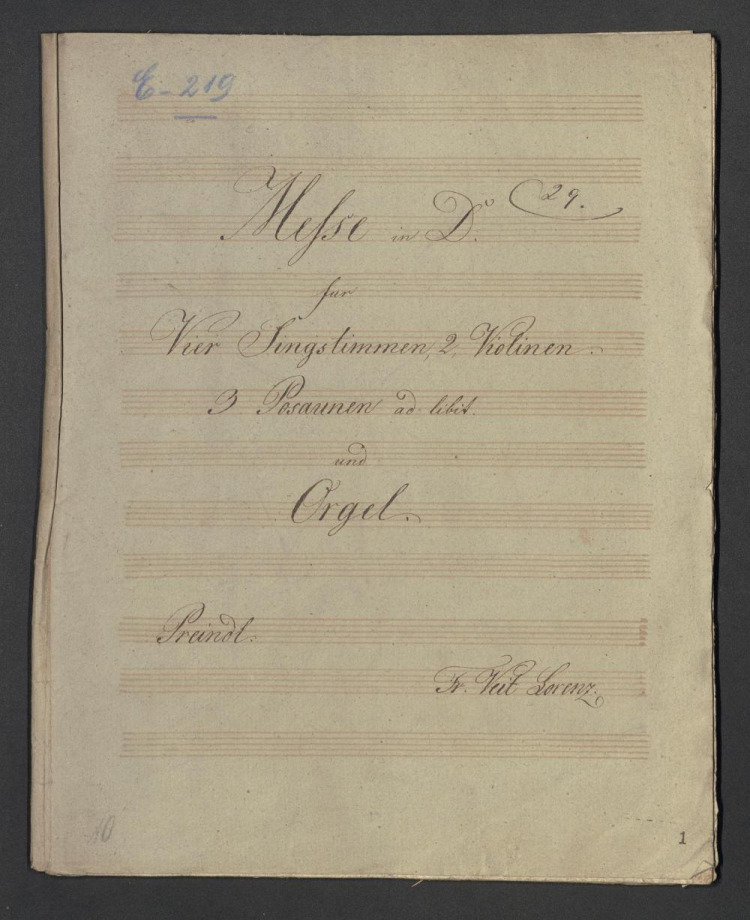 E-219
Messe in D.
29.
fur
Vier Singstimmen, 2 Violinen.
3 Posaunen ad libit.
und
Orgel.
Preindl.
Fr. Veit Lorenz.
10
1